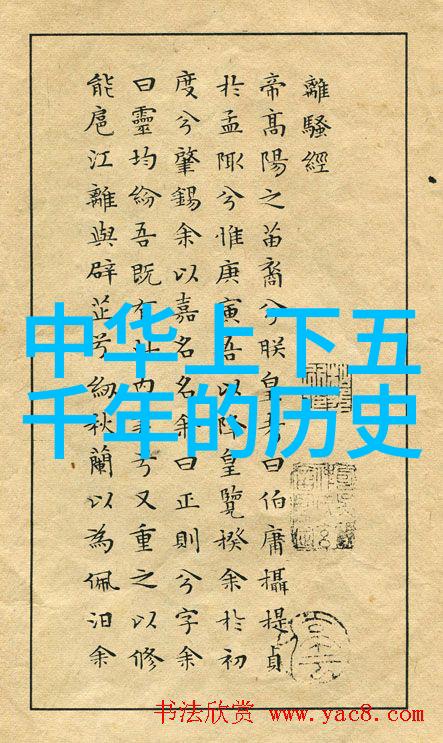 離騷經
帝高陽之苗裔兮朕皇考曰伯庸攝提貞
於孟陬兮惟庚寅吾以降皇覽揆余於初
度兮肇錫余以嘉名名余曰正則兮字余
曰靈均紛吾既有此內美兮又重之以修
能扈江離與辟芷兮紉秋蘭以為佩汨余
中华上下五
千年的历史
书法欣赏 www.yac8.com